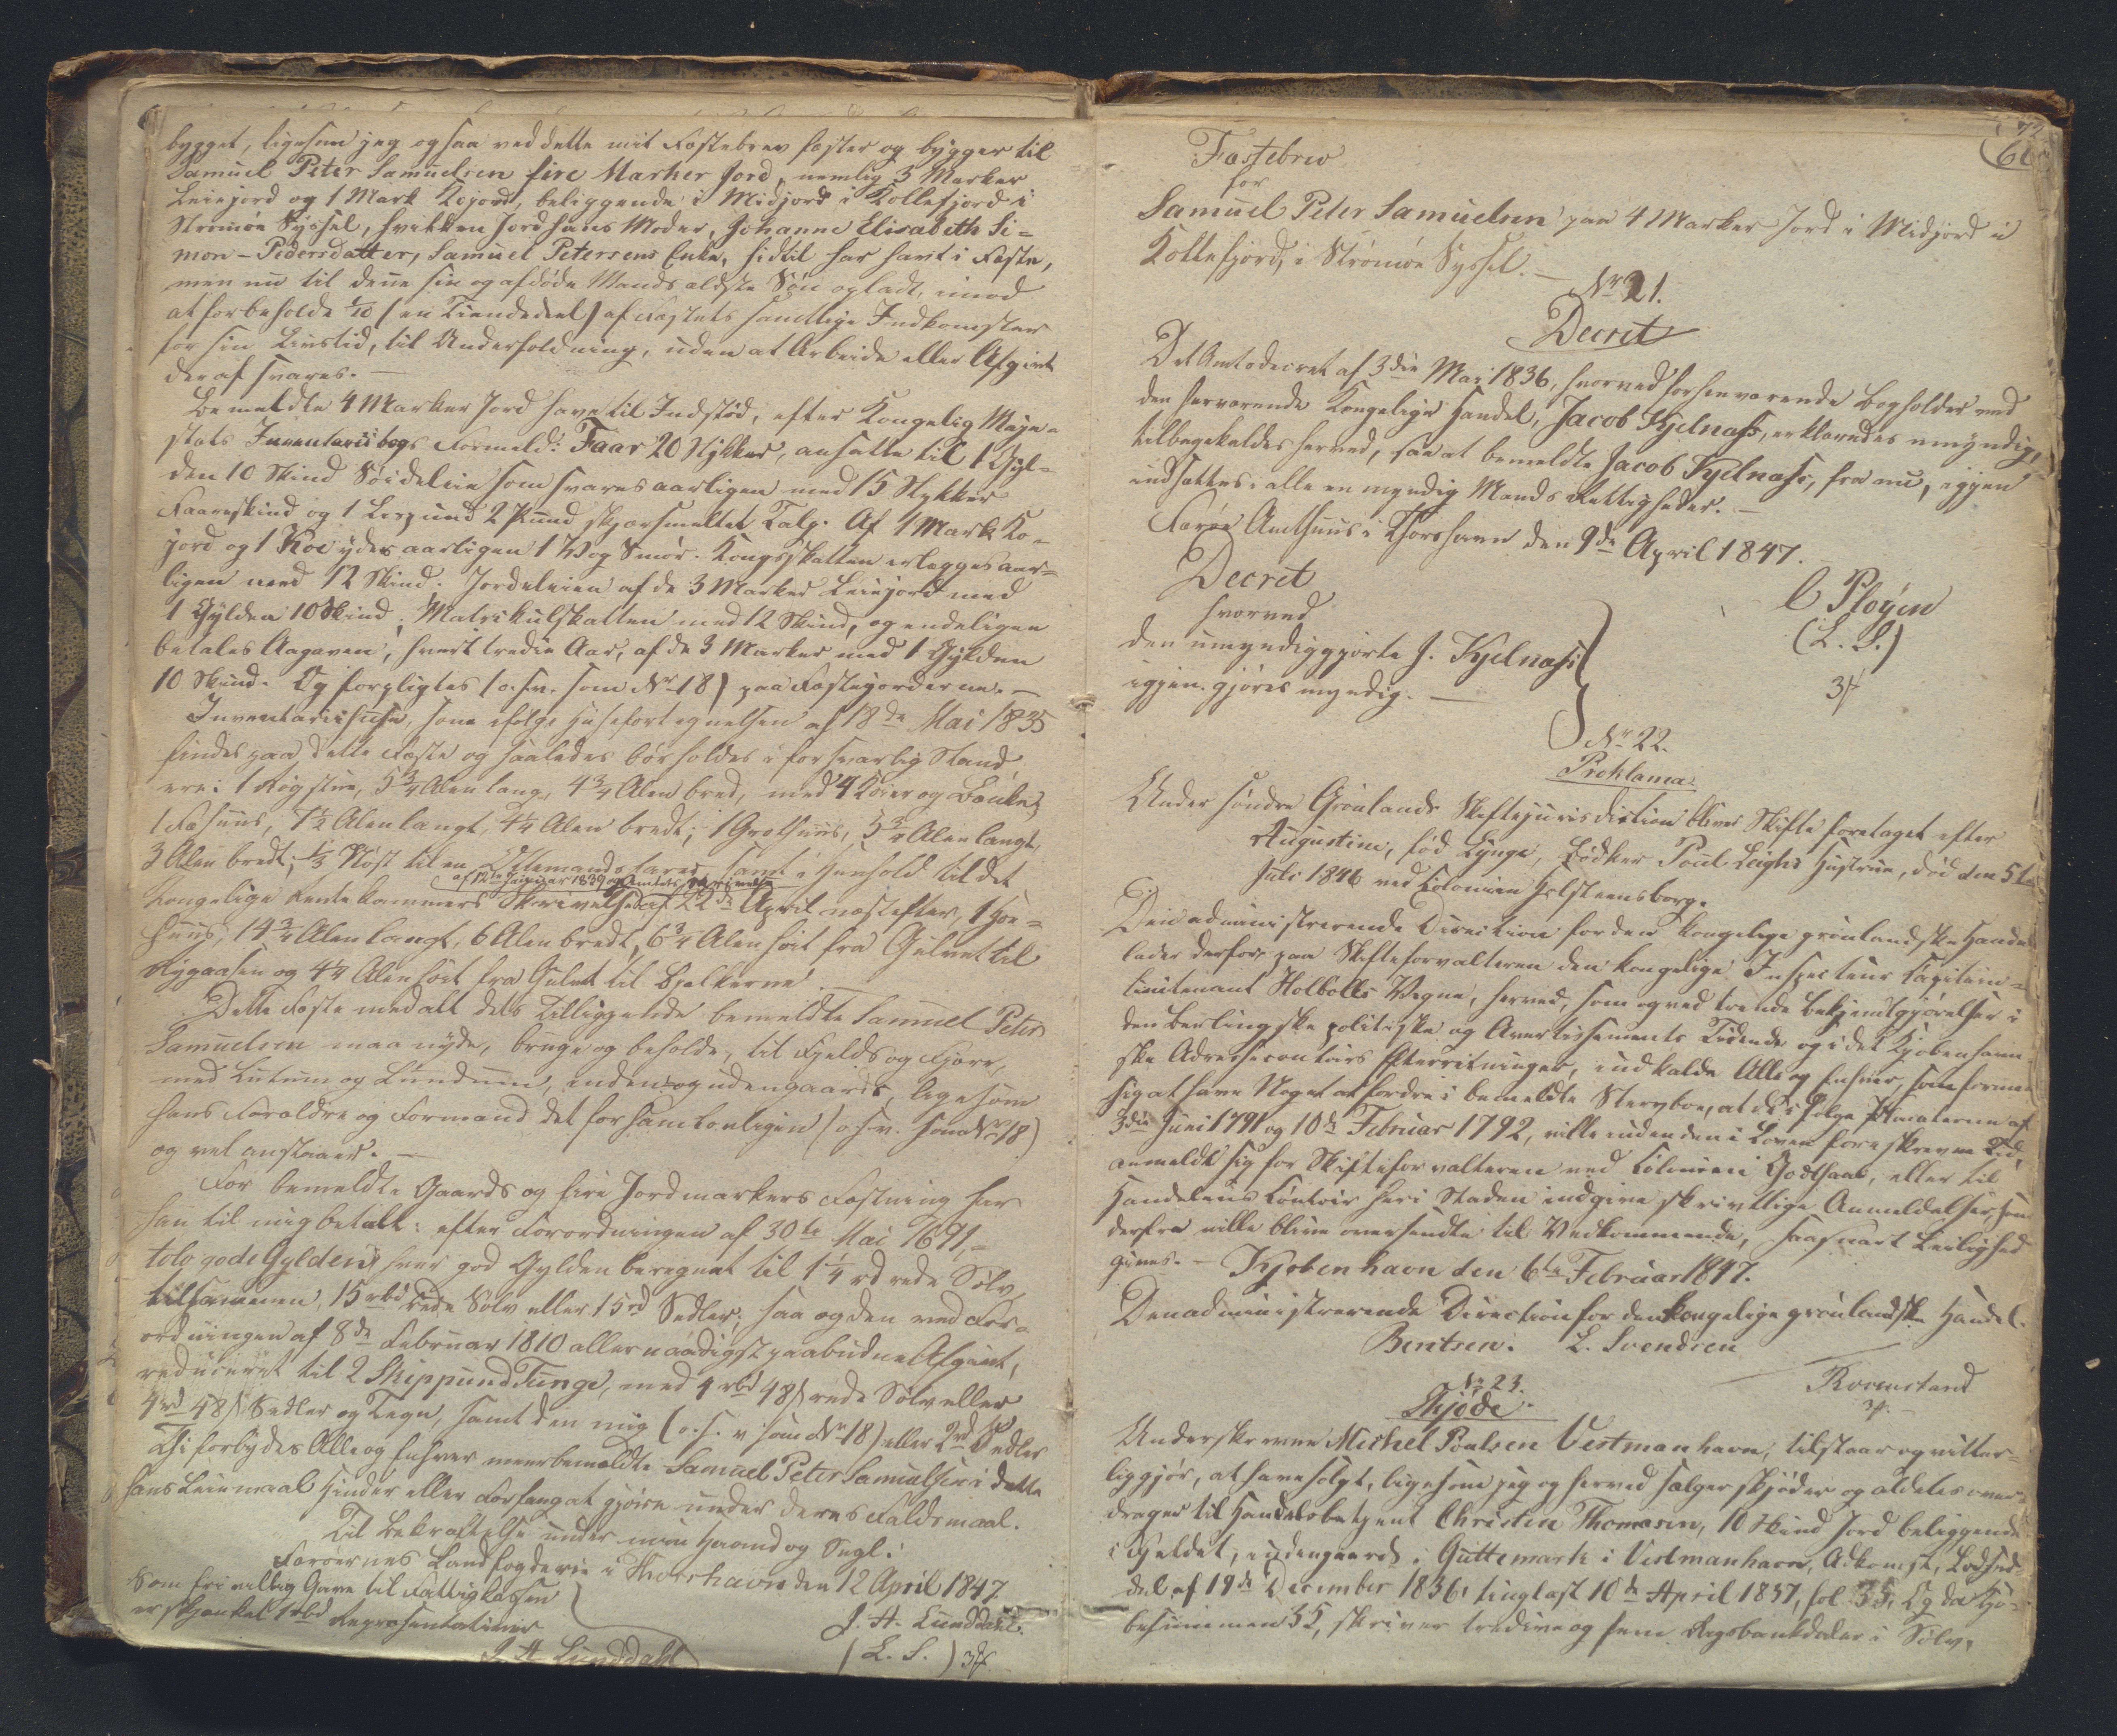 bygget, ligesom jeg ogsaa ved dette mit Fæstebrev fæster og bygger til
Samuel Peter Samuelsen fire Marker Jord, nemlig 3 Marker
Leiejord og 1 Mark Kojord, beliggende i Midjord i Kollefjord i
Strømøe Syssel, hvilken Jord hans Moder, Johanne Elisabeth Si-
mon-Pedersdatter, Samuel Petersens Enke, hidtil har havt i Fæste,
men nu til denne sin og afdøde Mands ældste Søn opladt, imod
at forbeholde 1/10 (en Tiendedeel) af Fæstets samtlige Indkomster
for sin Livstid, til Underholdning, uden at Arbeide eller Afgivt
deraf svares. —
Bemeldte 4 Marker Jord have til Indstød, efter Kongelig Maje-
stæts Inventarii bogs Formeld: Faar 20 Stykker, ansatte til 1 Gyl-
den 10 Skind Søideleie som svares aarligen med 15 Stykker
Faareskind og 1 Lispund 2 Pund skjærsmeltet Talg. Af 1 Mark Ko-
jord og 1 Koe ydes aarligen 1 Vog Smør. Kongsskatten erlægges aar-
ligen med 12 Skind. Jordeleien af de 3 Marker Leiejord med
1 Gylden 10 Skind, Matrikulskatten med 12 Skind, og endeligen
betales Aagaven, hvert tredie Aar, af de 3 Marker med 1 Gylden
10 Skind. Og forpligtes (o.s.v. som Nr 18) paa Fæstejorderne. —
Inventariihuse, som ifølge Husefortegnelsen af 18de Mai 1835
findes paa dette Fæste og saaledes bør holdes i forsvarlig Stand,
ere: 1 Røgstue, 5 3/4 Alen lang, 4 3/4 Alen bred, med 4 Køier og Bænke,
1 Fæhuus, 7 1/2 Alen langt, 4 1/4 Alen bredt; 1 Grothuus, 3 3/4 Alen langt,
3 Alen bredt; 1/3 Nøst til en Ottemandsfarer, samt i Henhold til det
af 12te Januar 1839 og Amtets Skrivelse
Kongelige Rentekammers Skrivelse af 22de April næstefter, 1 Høe-
huus, 14 3/4 Alen langt, 6 Alen bredt, 6 3/4 Alen høit fra Gulvet til
Rygaasen og 4 1/4 Alen høit fra Gulvet til Bjelkerne. —
Dette Fæste med alt dets Tilliggende bemeldte Samuel Peter
Samuelsen maa nyde, bruge og beholde, til Fjelds og Fjære,
med Lutum og Lundum, inden- og udengaards, ligesom
hans Forældre og Formænd det forhen lovligen (o.s.v. som Nr 18)
og vel anstaaer. —
For bemeldte Gaards og fire Jordmarkers Fæstning har
han til mig betalt: efter Forordningen af 30te Mai 1691,
tolv gode Gylden, hver god Gylden beregnet til 1 1/4 rd rede Sølv,
tilsammen, 15 rbd rede Sølv eller 15 rd Sedler; saa og den ved For-
ordningen af 8de Februar 1810 allernaadigst paabudne Afgivt,
reduceret til 2 Skippund Tunge, med 4 rbd 48 ß rede Sølv eller
4 rd 48 ß Sedler og Tegn, samt den mig (o.s.v. som Nr 18) eller 2 rd Sedler
Thi forbydes Alle og Enhver meerbemeldte Samuel Peter Samuelsen i dette
hans Leiemaal Hinder eller Forfang at gjøre under deres Faldsmaal.
Til Bekræftelse under min Haand og Segl.
Færøernes Landfogderie i Thorshavn den 12 April 1847.
Som frivillig Gave til Fattigkassen
er skjænket 1 rbd Repræsentativer
J. A. Lunddahl
J. A. Lunddahl.
(L. S.) 3 ß
72
66
Fæstebrev
for
Samuel Peter Samuelsen paa 4 Marker Jord i Midjord i
Kollefjord, i Strømøe Syssel. —
Nr 21.
Decret
Det Amtsdecret af 3die Mai 1836, hvorved forhenværende Bogholder ved
den herværende Kongelige Handel, Jacob Kjelnæss, erklæredes umyndig,
tilbagekaldes herved, saa at bemeldte Jacob Kjelnæss, fra nu, igjen
indsættes i alle en myndig Mands Rettigheder. —
Færøe Amthuus i Thorshavn den 9de April 1847.
Decret
hvorved
den umyndiggjorte J. Kjelnæss
igjen gjøres myndig. —
C Pløyen
(L. S.)
3 ß
Nr 22.
Proklama.
Under søndre Grønlands Skiftejurisdiction bliver Skifte foretaget efter
Augustine, fød Lynge, Bødker Poul Leighs Hustrue, død den 5te
Juli 1846 ved Colonien Holsteensborg.
Den administrerende Direction for den kongelige grønlandske Handel
lader derfor paa Skifteforvalteren den kongelige Inspecteur Capitain-
lieutenant Holbølls Vegne, herved, som og ved trende Bekjendtgjørelser i
den Berlingske politiske og Avertissements Tidende og i det Kjøbenhavn-
ske Adressecontoirs Efterretninger, indkalde Alle og Enhver, som formene
sig at have Noget at fordre i bemeldte Sterboe, at de ifølge Placaterne af
3die Juni 1791 og 10de Februar 1792, ville inden den i Loven foreskrevne Tid,
anmelde sig for Skifteforvalteren ved Colonien Godthaab, eller til
Handelens Contoir her i Staden indgive skrivtlige Anmeldelser, som
derfra ville blive oversendte til Vedkommende, saasnart Leilighed
gives. — Kjøbenhavn den 6te Februar 1847.
Den administrerende Direction for den kongelige grønlandske Handel.
Bentzen. L. Svendsen
Rosenstand
3 ß.
Nr 23.
Skjøde.
Underskrevne Michel Poulsen Vestmanhavn, tilstaar og vitter-
liggjør, at have solgt, ligesom jeg og herved sælger skjøder og aldeles over-
drager til Handelsbetjent Christen Thomsen, 10 Skind Jord beliggende
i Fjeldet, udengaards i Guttemark i Vestmanhavn, Adkomst, Lodsed-
del af 19de December 1836, tinglæst 10de April 1837, fol. 35. Og da Kjø-
besummen 35, skriver tredive og fem Rigsbankdaler i Sølv,